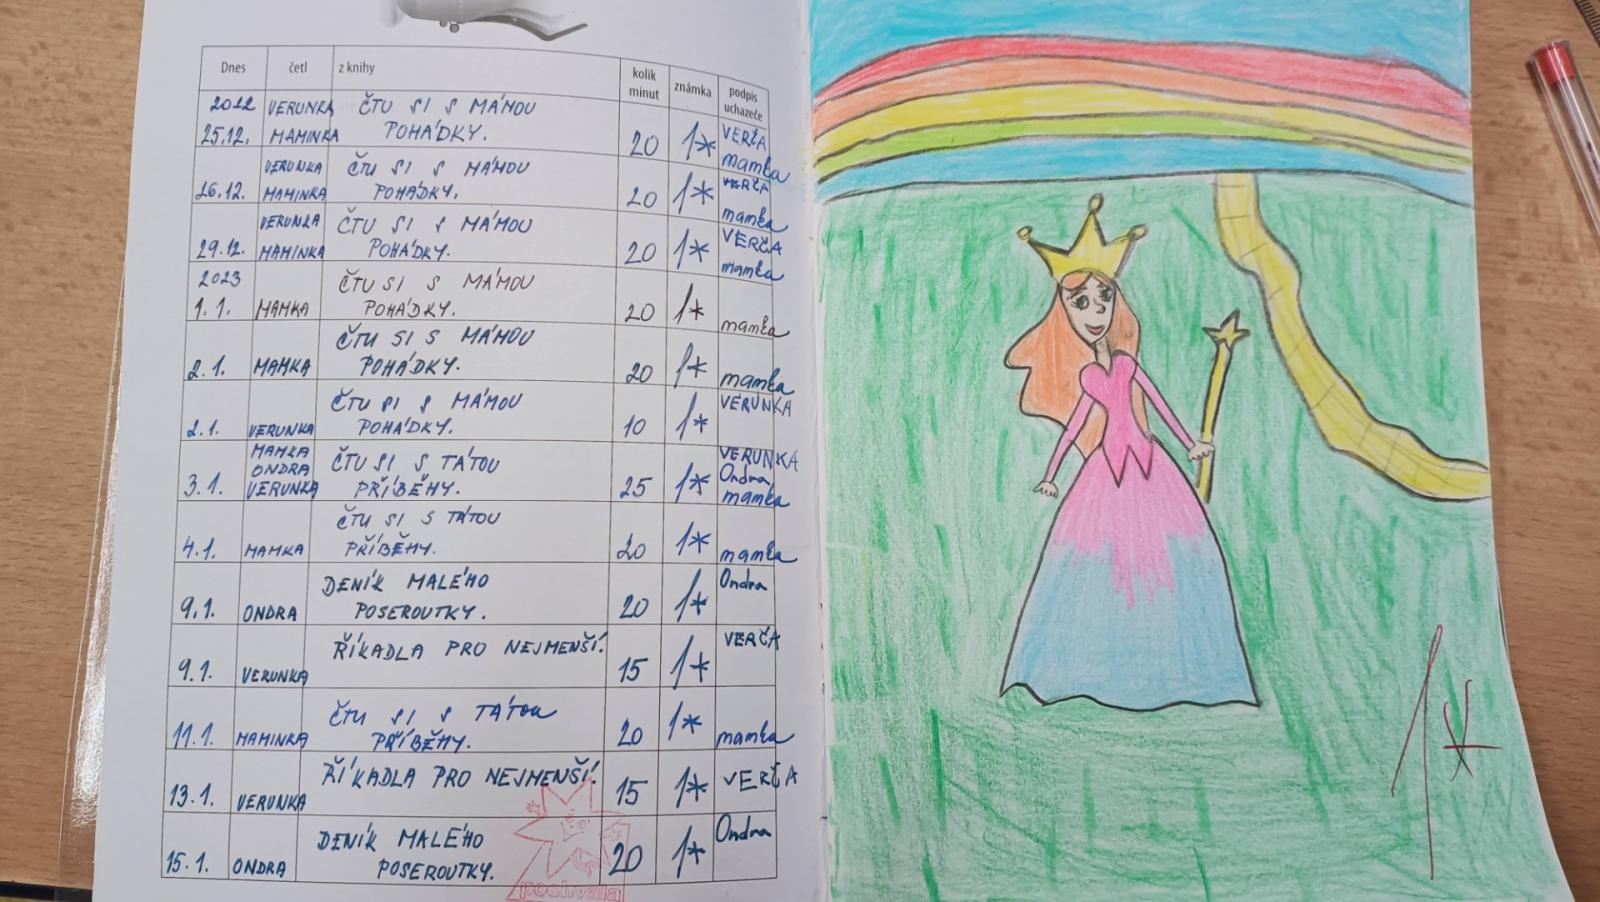 Dnes četl z knihy kolik minut známka podpis uchazeče
2022 VERUNKA ČTU SI S MÁMOU VERČA
25.12. MAMINKA POHÁDKY. 20 1* mamka
VERUNKA ČTU SI S MÁMOU VERČA
26.12. MAMINKA POHÁDKY. 20 1* mamka
VERUNKA ČTU SI S MÁMOU VERČA
29.12. MAMINKA POHÁDKY. 20 1* mamka
2023 ČTU SI S MÁMOU
1.1. MAMKA POHÁDKY. 20 1* mamka
ČTU SI S MÁMOU
2.1. MAMKA POHÁDKY. 20 1* mamka
ČTU SI S MÁMOU VERUNKA
2.1. VERUNKA POHÁDKY. 10 1*
MAMKA VERUNKA
ONDRA ČTU SI S TÁTOU Ondra
3.1. VERUNKA PŘÍBĚHY. 25 1* mamka
ČTU SI S TÁTOU
4.1. MAMKA PŘÍBĚHY. 20 1* mamka
DENÍK MALÉHO Ondra
9.1. ONDRA POSEROUTKY. 20 1*
ŘÍKADLA PRO NEJMENŠÍ. VERČA
9.1. VERUNKA 15 1*
ČTU SI S TÁTOU
11.1. MAMINKA PŘÍBĚHY. 20 1* mamka
ŘÍKADLA PRO NEJMENŠÍ. VERČA
13.1. VERUNKA 15 1*
DENÍK MALÉHO Ondra
15.1. ONDRA POSEROUTKY. 20 1*
pochvala
1*